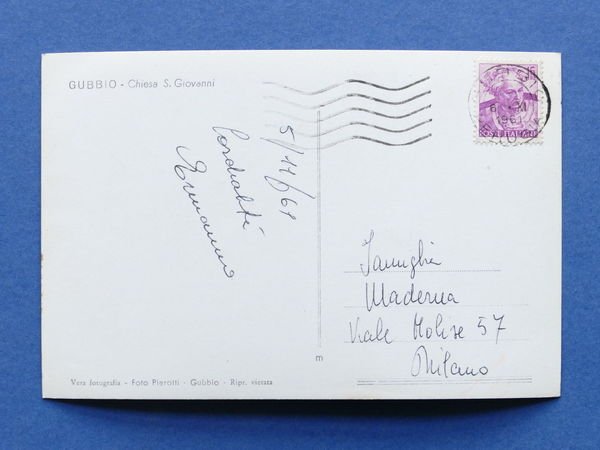 GUBBIO - Chiesa S. Giovanni
15
6 XI
1961
POSTE ITALIANE
5/11/61
Cordialità
Ermanno
Famiglia
Maderna
Viale Molise 57
Milano
m
Vera fotografia - Foto Pierotti - Gubbio - Ripr. vietata